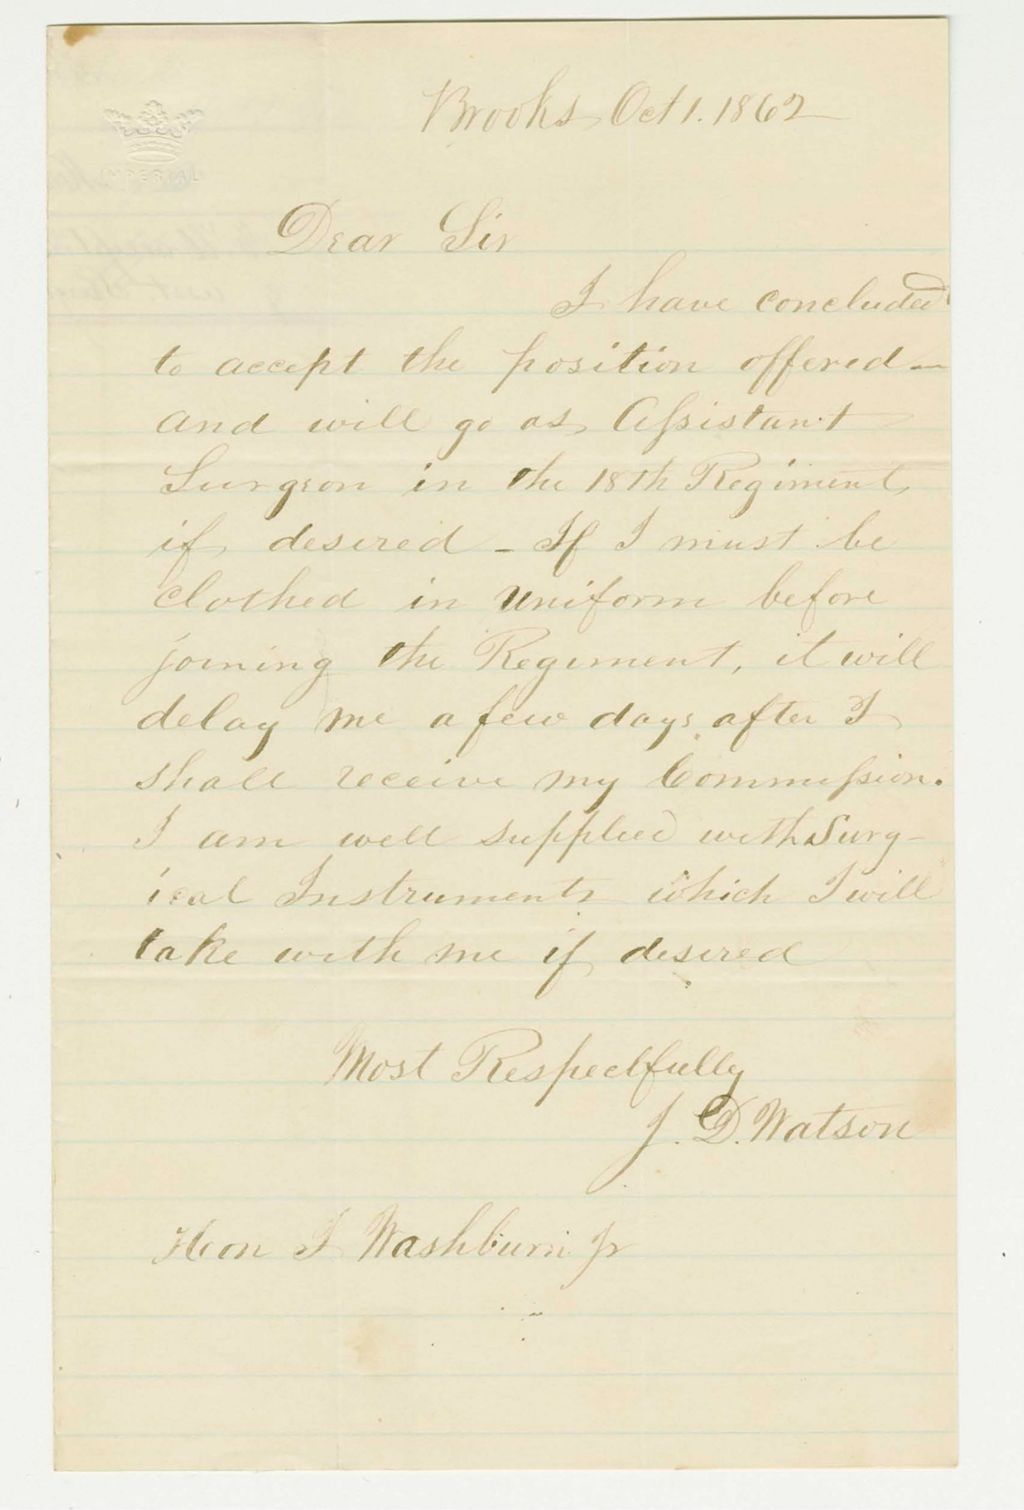 IMPERIAL
Brooks Oct 1. 1862
Dear Sir
I have concluded
to accept the position offered—
and will go as Aſsistant
Surgeon in the 18th Regiment
if desired - If I must be
clothed in uniform before
joining the Regiment, it will
delay me a few days after I
shall receive my Commiſsion.
I am well supplied with Surg-
ical Instruments which I will
take with me if desired
Most Respectfully
J. D. Watson
Hon I Washburn Jr